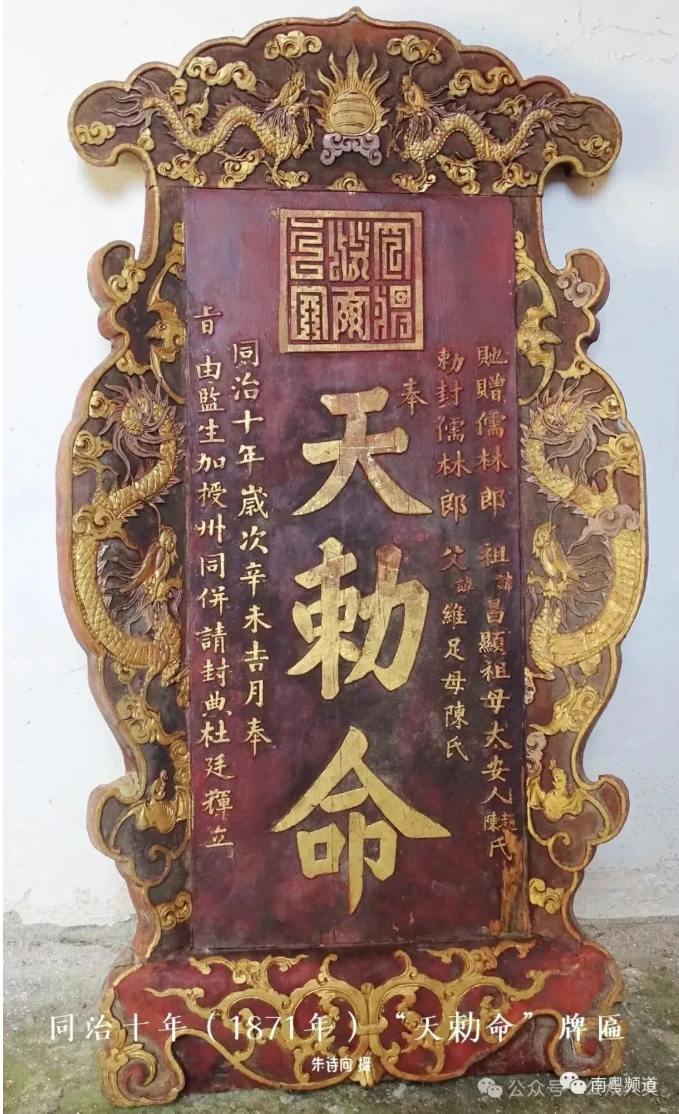 奉
天勅命
貤贈儒林郎 祖諱昌顯祖母太安人趙陳氏
勅封儒林郎 父諱維足母陳氏
同治十年歲次辛未吉月奉
旨由監生加授州同併請封典杜廷輝立
同治十年（1871年）“天勅命”牌匾
朱诗向 摄
公众号
南粤频道